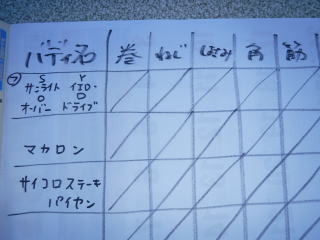 バディ名 巻 ねじ しぼみ 角 筋
フ S Y
サンライト イエロー
O D
オーバー ドライブ
マカロン
サイコロステーキ
パイセン